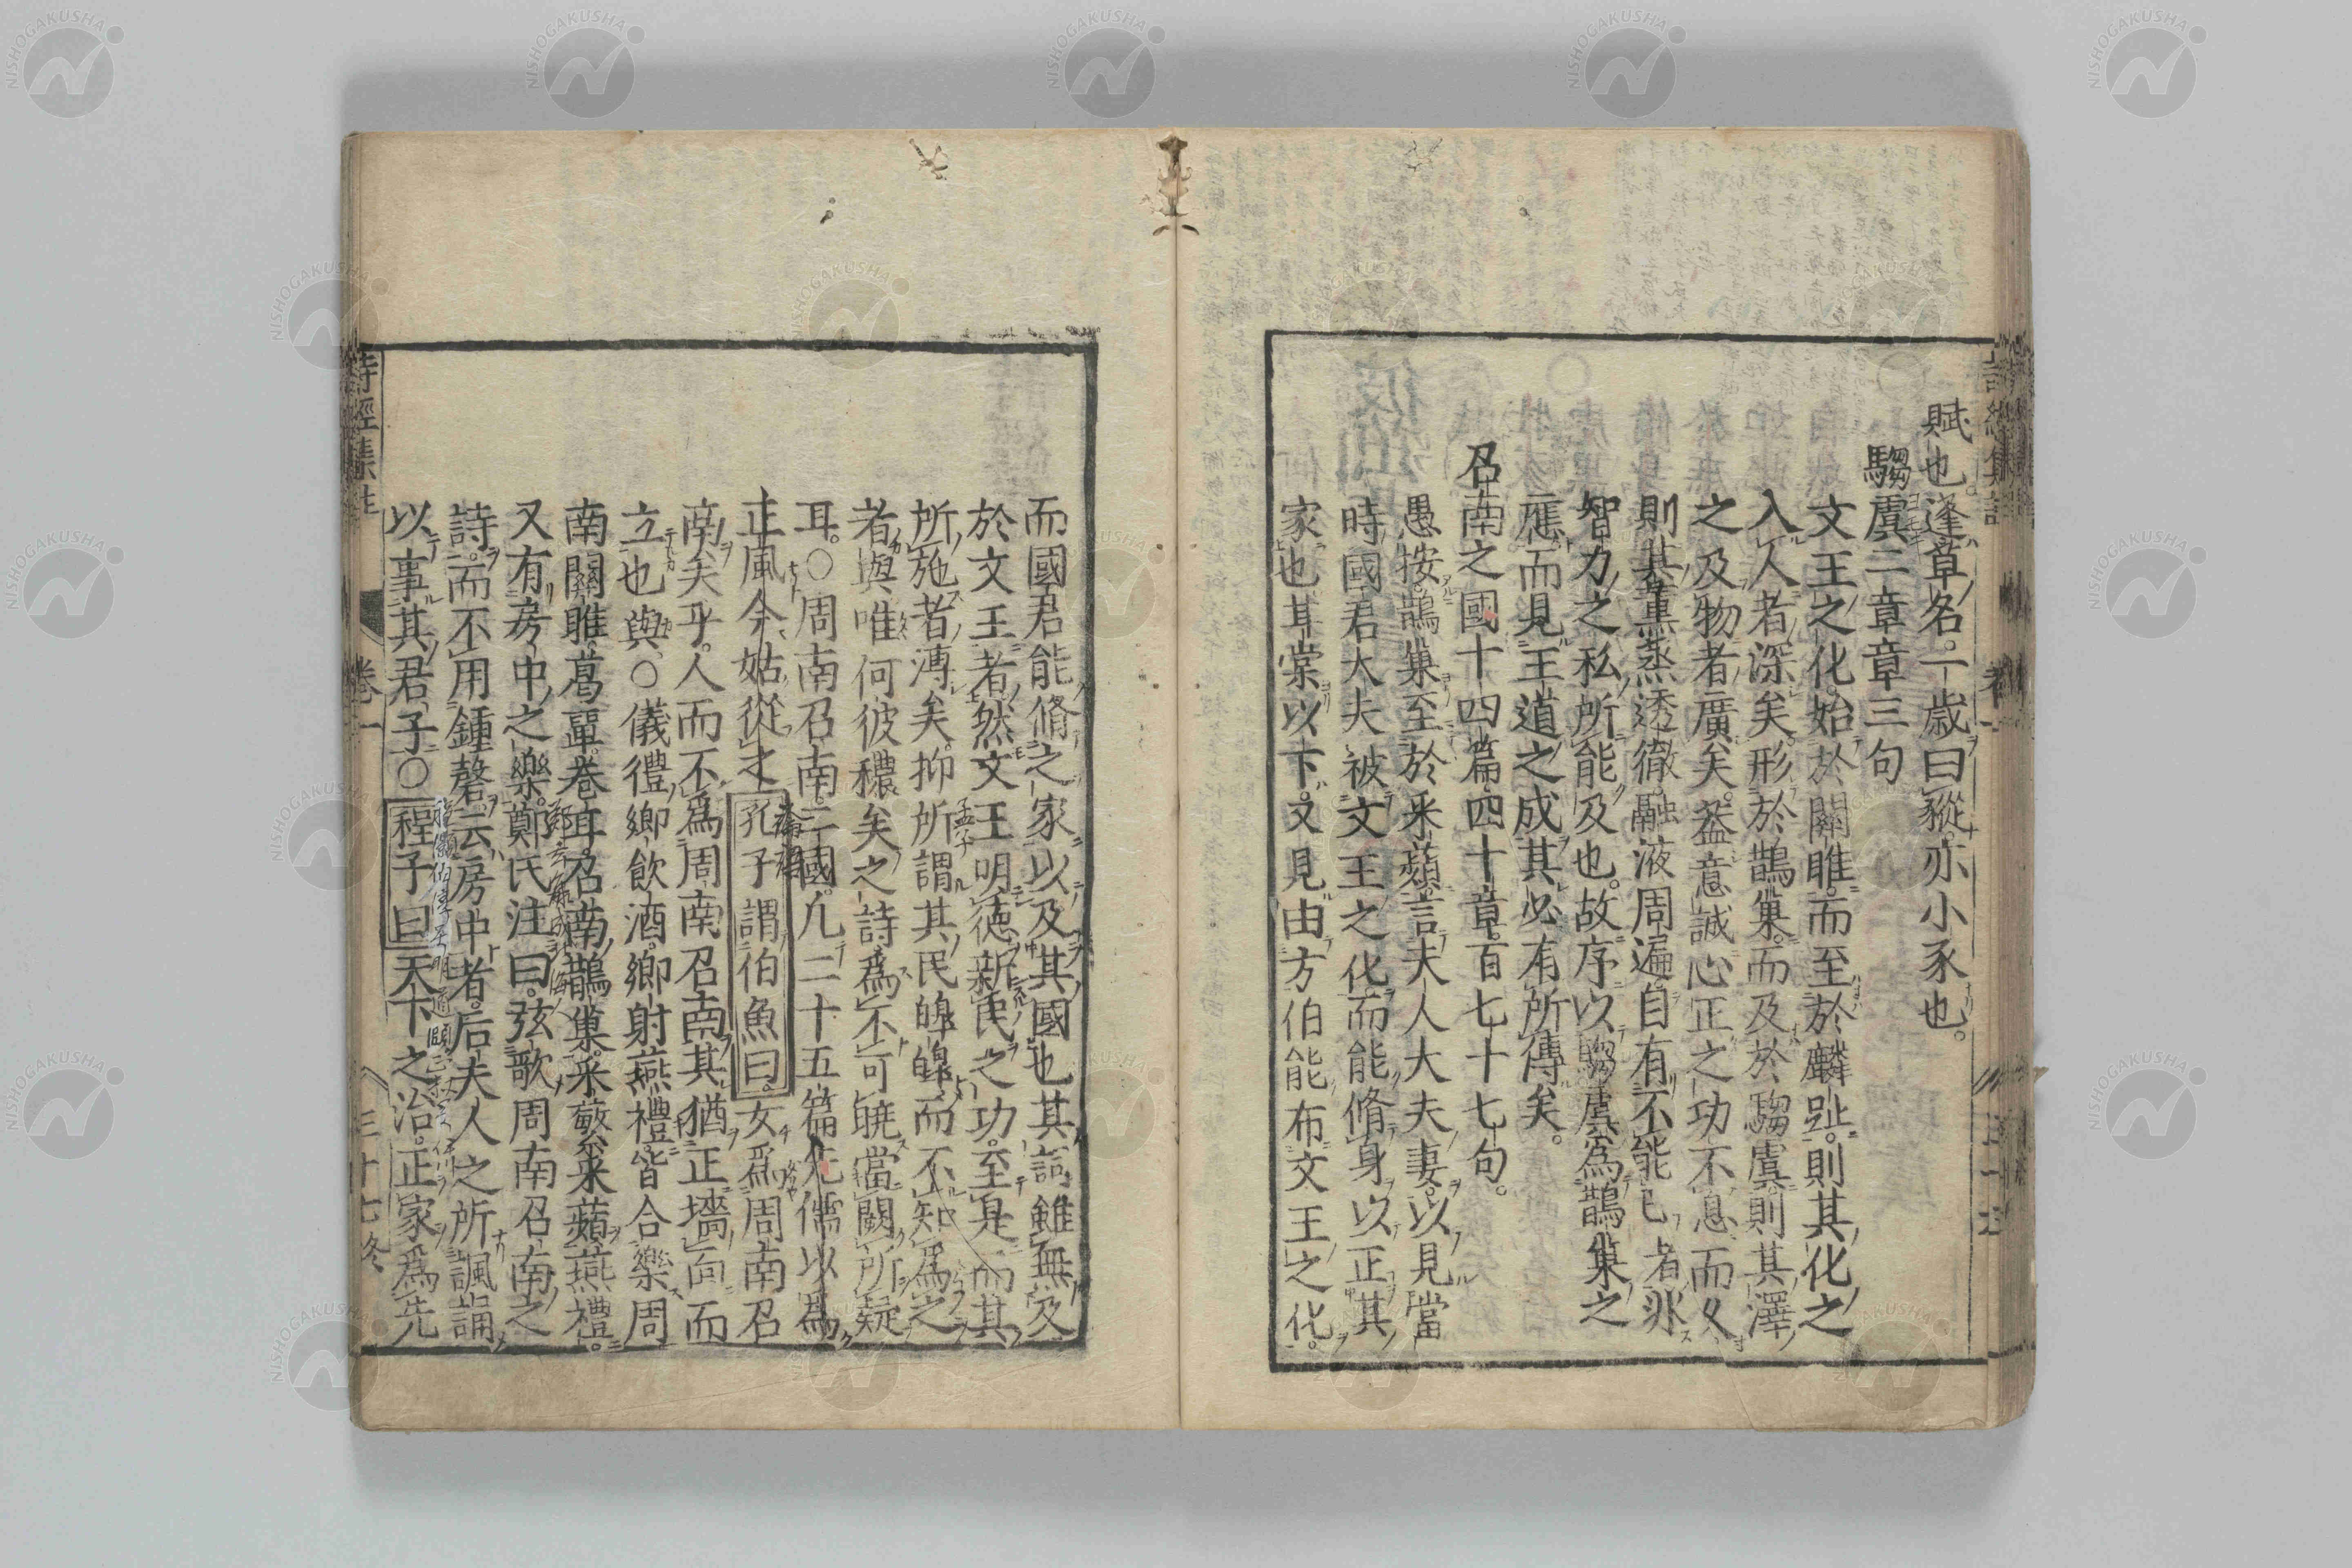 賦也。蓬草名。一歳曰豵。亦小豕也。
騶虞二章章三句
文王之化。始於關雎。而至於麟趾。則其化之
入人者深矣。形於鵲巢。而及於騶虞。則其澤
之及物者廣矣。葢意誠心正之功。不息而久
則其熏蒸透徹。融液周遍。自有不能已者。非
智力之私所能及也。故序以騶虞爲鵲巢之
應。而見王道之成。其必有所傳矣。
召南之國十四篇。四十章。百七十七句。
愚按。鵲巢至於采蘋。言夫人大夫妻。以見當
時國君大夫被文王之化。而能脩身以正其
家也。甘棠以下。又見由方伯能布文王之化。
而國君能脩之家以及其國也。其詞雖無及
於文王者。然文王明德新民之功。至是而其
所施者溥矣。抑所謂其民皡皡而不知爲之
者與。唯何彼穠矣之詩爲不可曉。當闕所疑
耳。○周南召南二國。凡二十五篇。先儒以爲
正風。今姑從之
孔子謂伯魚曰。女爲周南召
南矣乎。人而不爲周南召南。其猶正墻面而
立也與。○儀禮鄉飲酒。鄉射燕禮。皆合樂周
南關雎葛覃卷耳。召南鵲巢。采蘩采蘋。燕禮。
又有房中之樂。鄭氏注曰。弦歌周南召南之
詩。而不用鍾磬。云房中者。后夫人之所諷誦
以事其君子。○程子曰。天下之治。正家爲先
詩經集註
卷一
三十七終
NISHOGAKUSHA